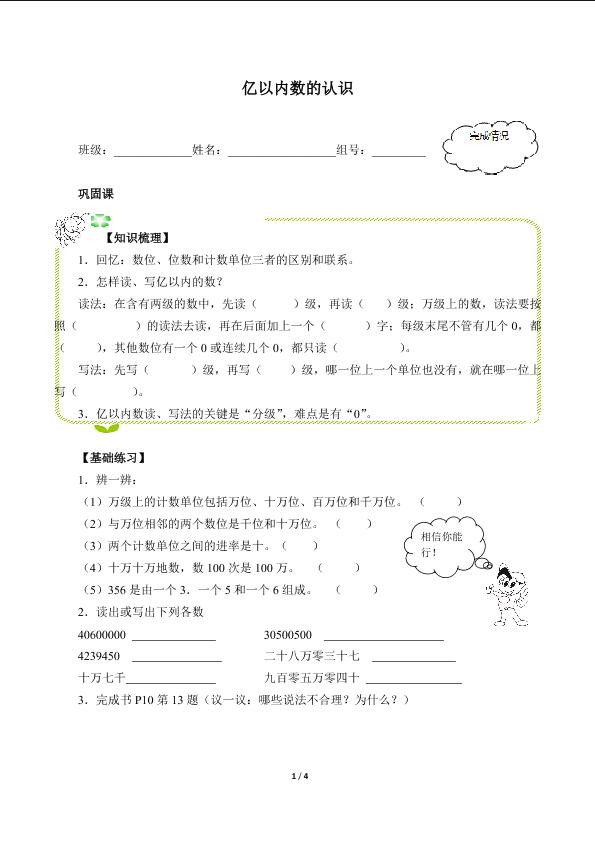 亿以内数的认识
完成情况
班级：_____________姓名：__________________组号：_________
巩固课
【知识梳理】
1．回忆：数位、位数和计数单位三者的区别和联系。
2．怎样读、写亿以内的数？
读法：在含有两级的数中，先读（ ）级，再读（ ）级；万级上的数，读法要按
照（ ）的读法去读，再在后面加上一个（ ）字；每级末尾不管有几个 0，都
（ ），其他数位有一个 0 或连续几个 0，都只读（ ）。
写法：先写（ ）级，再写（ ）级，哪一位上一个单位也没有，就在哪一位上
写（ ）。
3．亿以内数读、写法的关键是“分级”，难点是有“0”。
【基础练习】
1．辨一辨：
（1）万级上的计数单位包括万位、十万位、百万位和千万位。 （ ）
（2）与万位相邻的两个数位是千位和十万位。 （ ）
（3）两个计数单位之间的进率是十。（ ）
（4）十万十万地数，数 100 次是 100 万。 （ ）
（5）356 是由一个 3．一个 5 和一个 6 组成。 （ ）
相信你能
行！
2．读出或写出下列各数
40600000 ______________ 30500500 ____________________
4239450 _______________ 二十八万零三十七 ______________
十万七千_______________ 九百零五万零四十 ________________
3．完成书 P10 第 13 题（议一议：哪些说法不合理？为什么？）
1 / 4